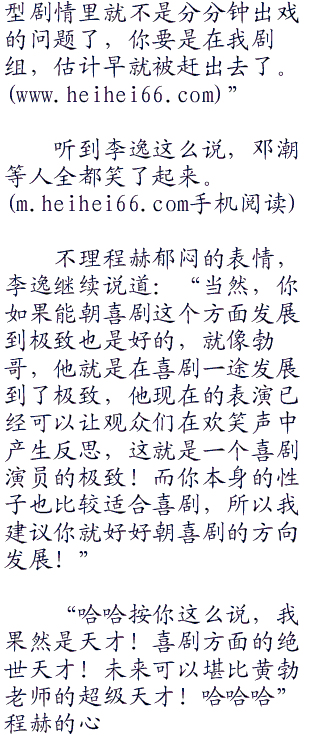 型剧情里就不是分分钟出戏
的问题了，你要是在我剧
组，估计早就被赶出去了。
(www.heihei66.com)”
听到李逸这么说，邓潮
等人全都笑了起来。
(m.heihei66.com手机阅读)
不理程赫郁闷的表情，
李逸继续说道：“当然，你
如果能朝喜剧这个方面发展
到极致也是好的，就像勃
哥，他就是在喜剧一途发展
到了极致，他现在的表演已
经可以让观众们在欢笑声中
产生反思，这就是一个喜剧
演员的极致！而你本身的性
子也比较适合喜剧，所以我
建议你就好好朝喜剧的方向
发展！”
“哈哈按你这么说，我
果然是天才！喜剧方面的绝
世天才！未来可以堪比黄勃
老师的超级天才！哈哈哈”
程赫的心